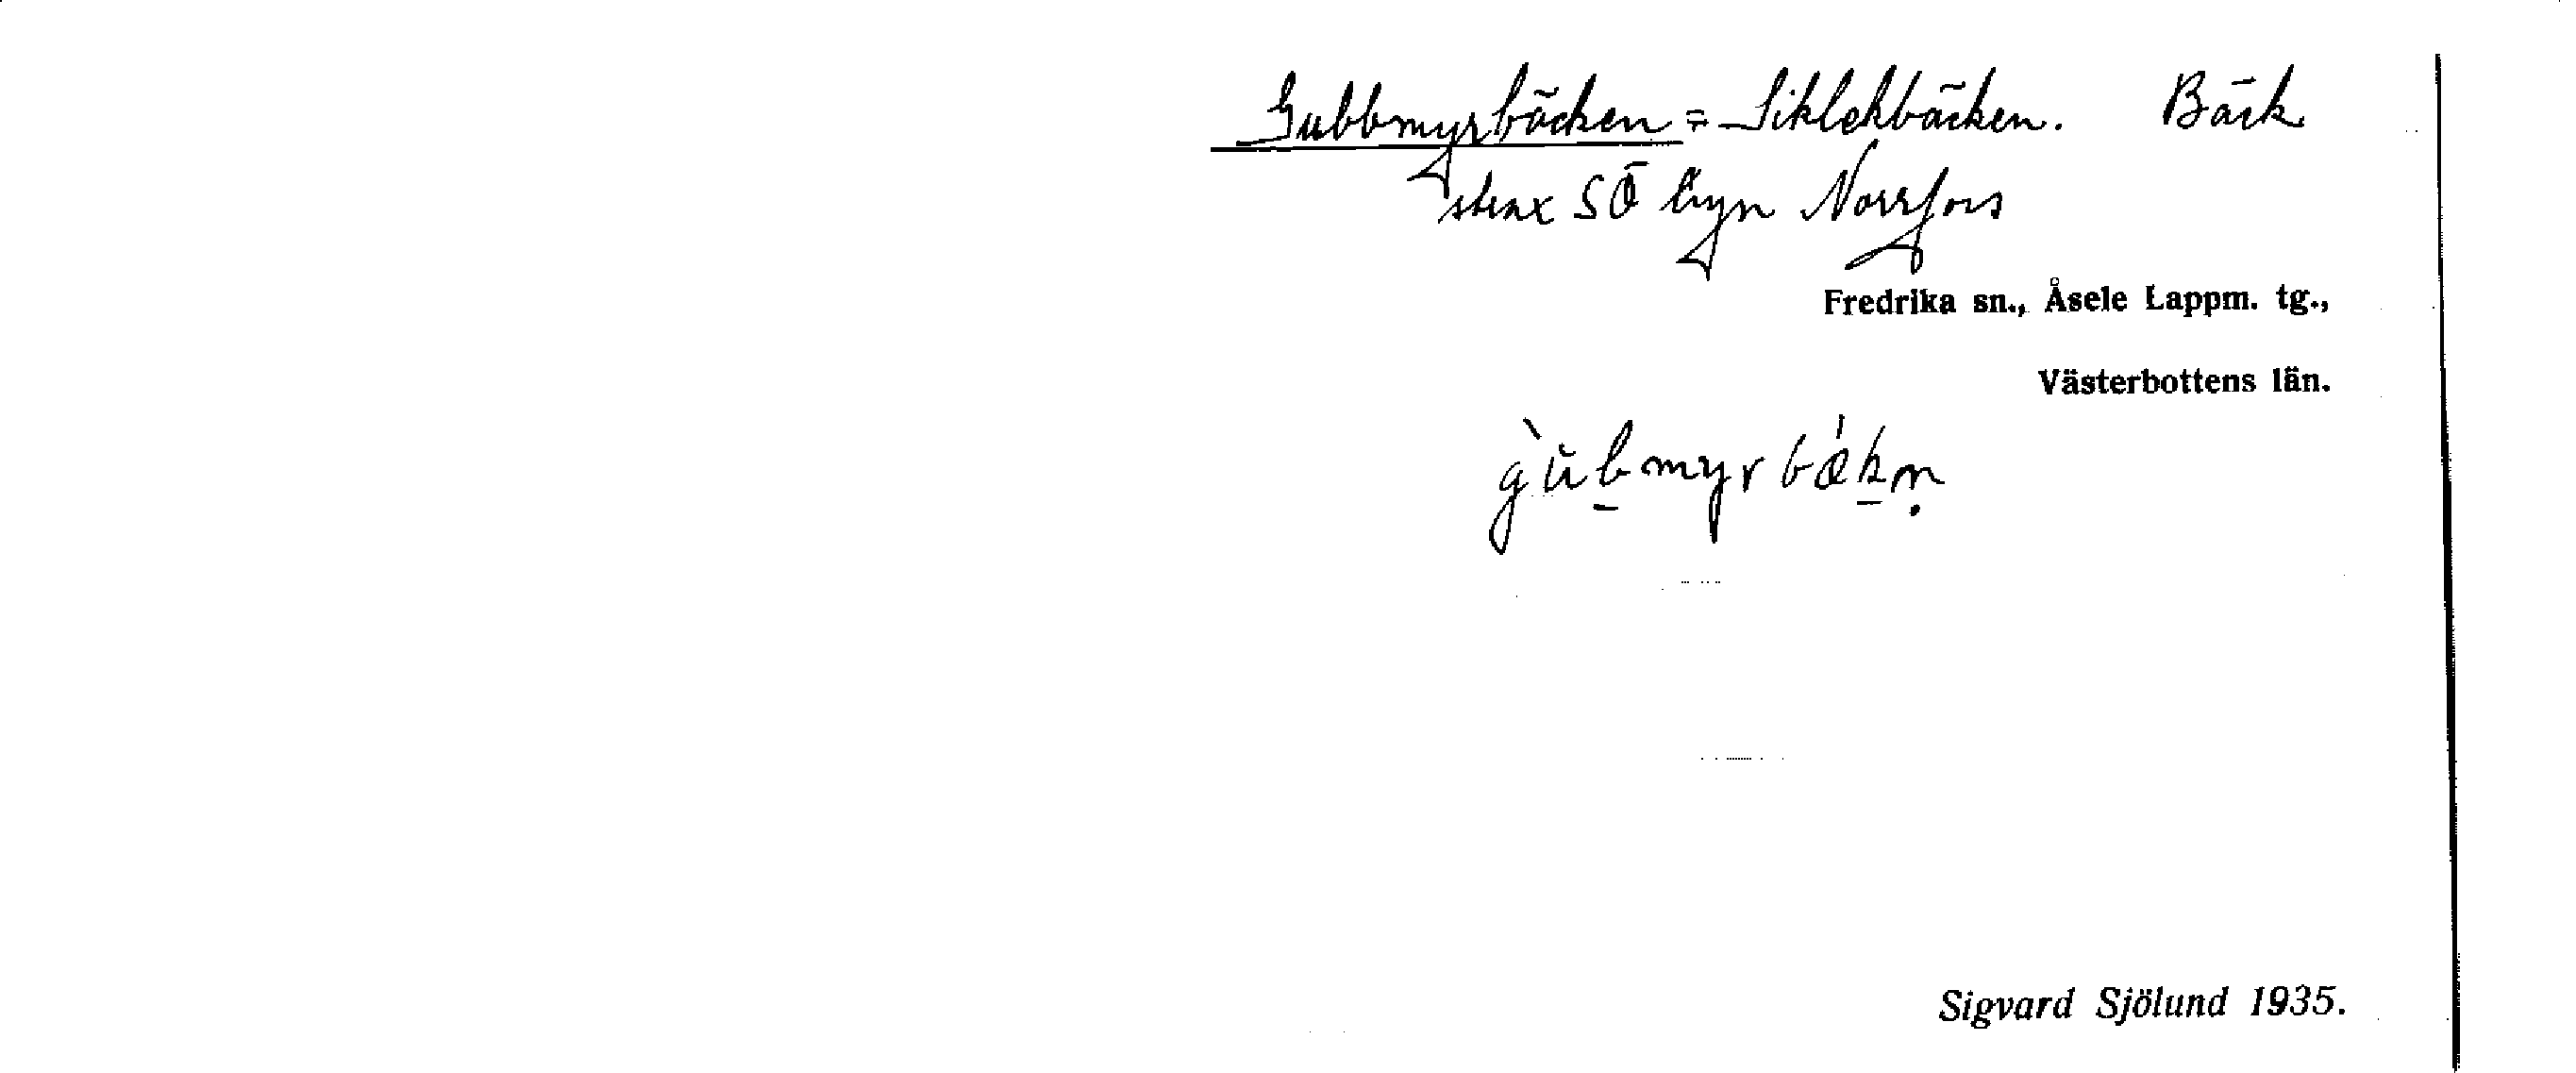 Gubbmyrbäcken = Siklekbäcken. Bäck
strax SÖ byn Norrfors
Fredrika sn., Åsele Lappm. tg.,
Västerbottens län.
g̀ŭḇmyrbǽḵṇ
Sigvard Sjölund 1935.